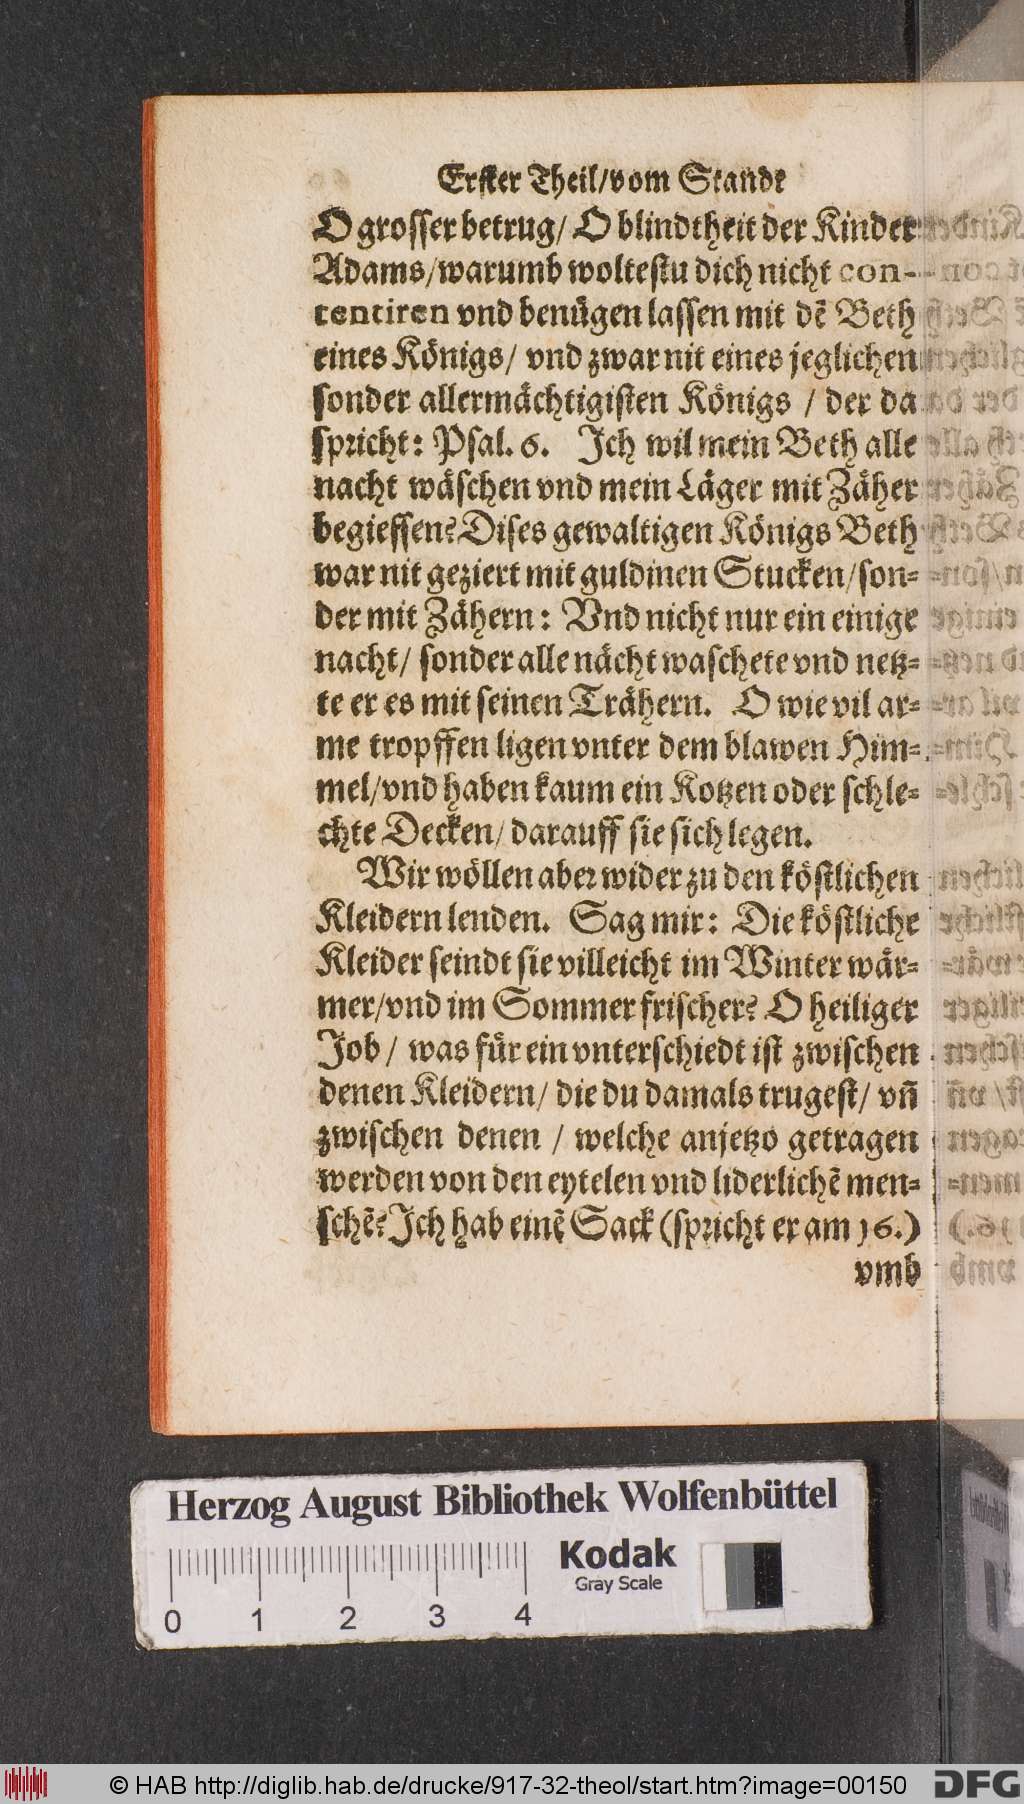 Erster Theil/vom Stande
O grosser betrug/ O blindtheit der Kinder
Adams/warumb woltestu dich nicht con-
tentiren vnd benügen lassen mit dẽ Beth
eines Königs/ vnd zwar nit eines jeglichen
sonder allermächtigisten Königs / der da
spricht: Psal. 6. Ich wil mein Beth alle
nacht wäschen vnd mein Läger mit Zäher
begiessen? Dises gewaltigen Königs Beth
war nit geziert mit guldinen Stucken/son-
der mit Zähern: Vnd nicht nur ein einige
nacht/ sonder alle nächt waschete vnd netz-
te er es mit seinen Trähern. O wie vil ar-
me tropffen ligen vnter dem blawen Him-
mel/vnd haben kaum ein Kotzen oder schle-
chte Decken/ darauff sie sich legen.
Wir wöllen aber wider zu den köstlichen
Kleidern lenden. Sag mir: Die köstliche
Kleider seindt sie villeicht im Winter wär-
mer/vnd im Sommer frischer? O heiliger
Job / was für ein vnterschiedt ist zwischen
denen Kleidern/ die du damals trugest/ vñ
zwischen denen / welche anjetzo getragen
werden von den eytelen vnd liderlichẽ men-
schẽ? Ich hab einẽ Sack (spricht er am 16.)
vmb
Herzog August Bibliothek Wolfenbüttel
Kodak
Gray Scale
0 1 2 3 4
© HAB http://diglib.hab.de/drucke/917-32-theol/start.htm?image=00150
DFG